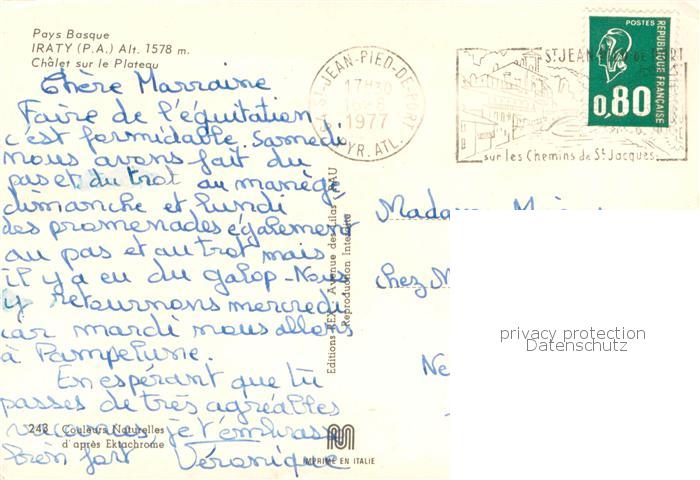 Pays Basque
IRATY (P.A.) Alt. 1578 m.
Châlet sur le Plateau
Chère Marraine
Faire de l'équitation
c'est formidable. Samedi,
nous avons fait du
pas et du trot au manège
dimanche et lundi
des promenades également
au pas et au trot mais
il y a eu du galop - Nous
y retournons mercredi
car mardi nous allons
à Pampelune.
En espérant que tu
passes de très agréables
vacances, je t'embrasse
bien fort Véronique
243 Couleurs Naturelles
d'après Ektachrome
Editions REX, Avenue des Lilas PAU
Reproduction Interdite
IMPRIMÉ EN ITALIE
ST-JEAN-PIED-DE-PORT
17H30
1977
PYR. ATL.
ST JEAN PIED DE PORT
sur les Chemins de St Jacques
POSTES
REPUBLIQUE FRANÇAISE
0,80
Madame
chez M
Ne
privacy protection
Datenschutz